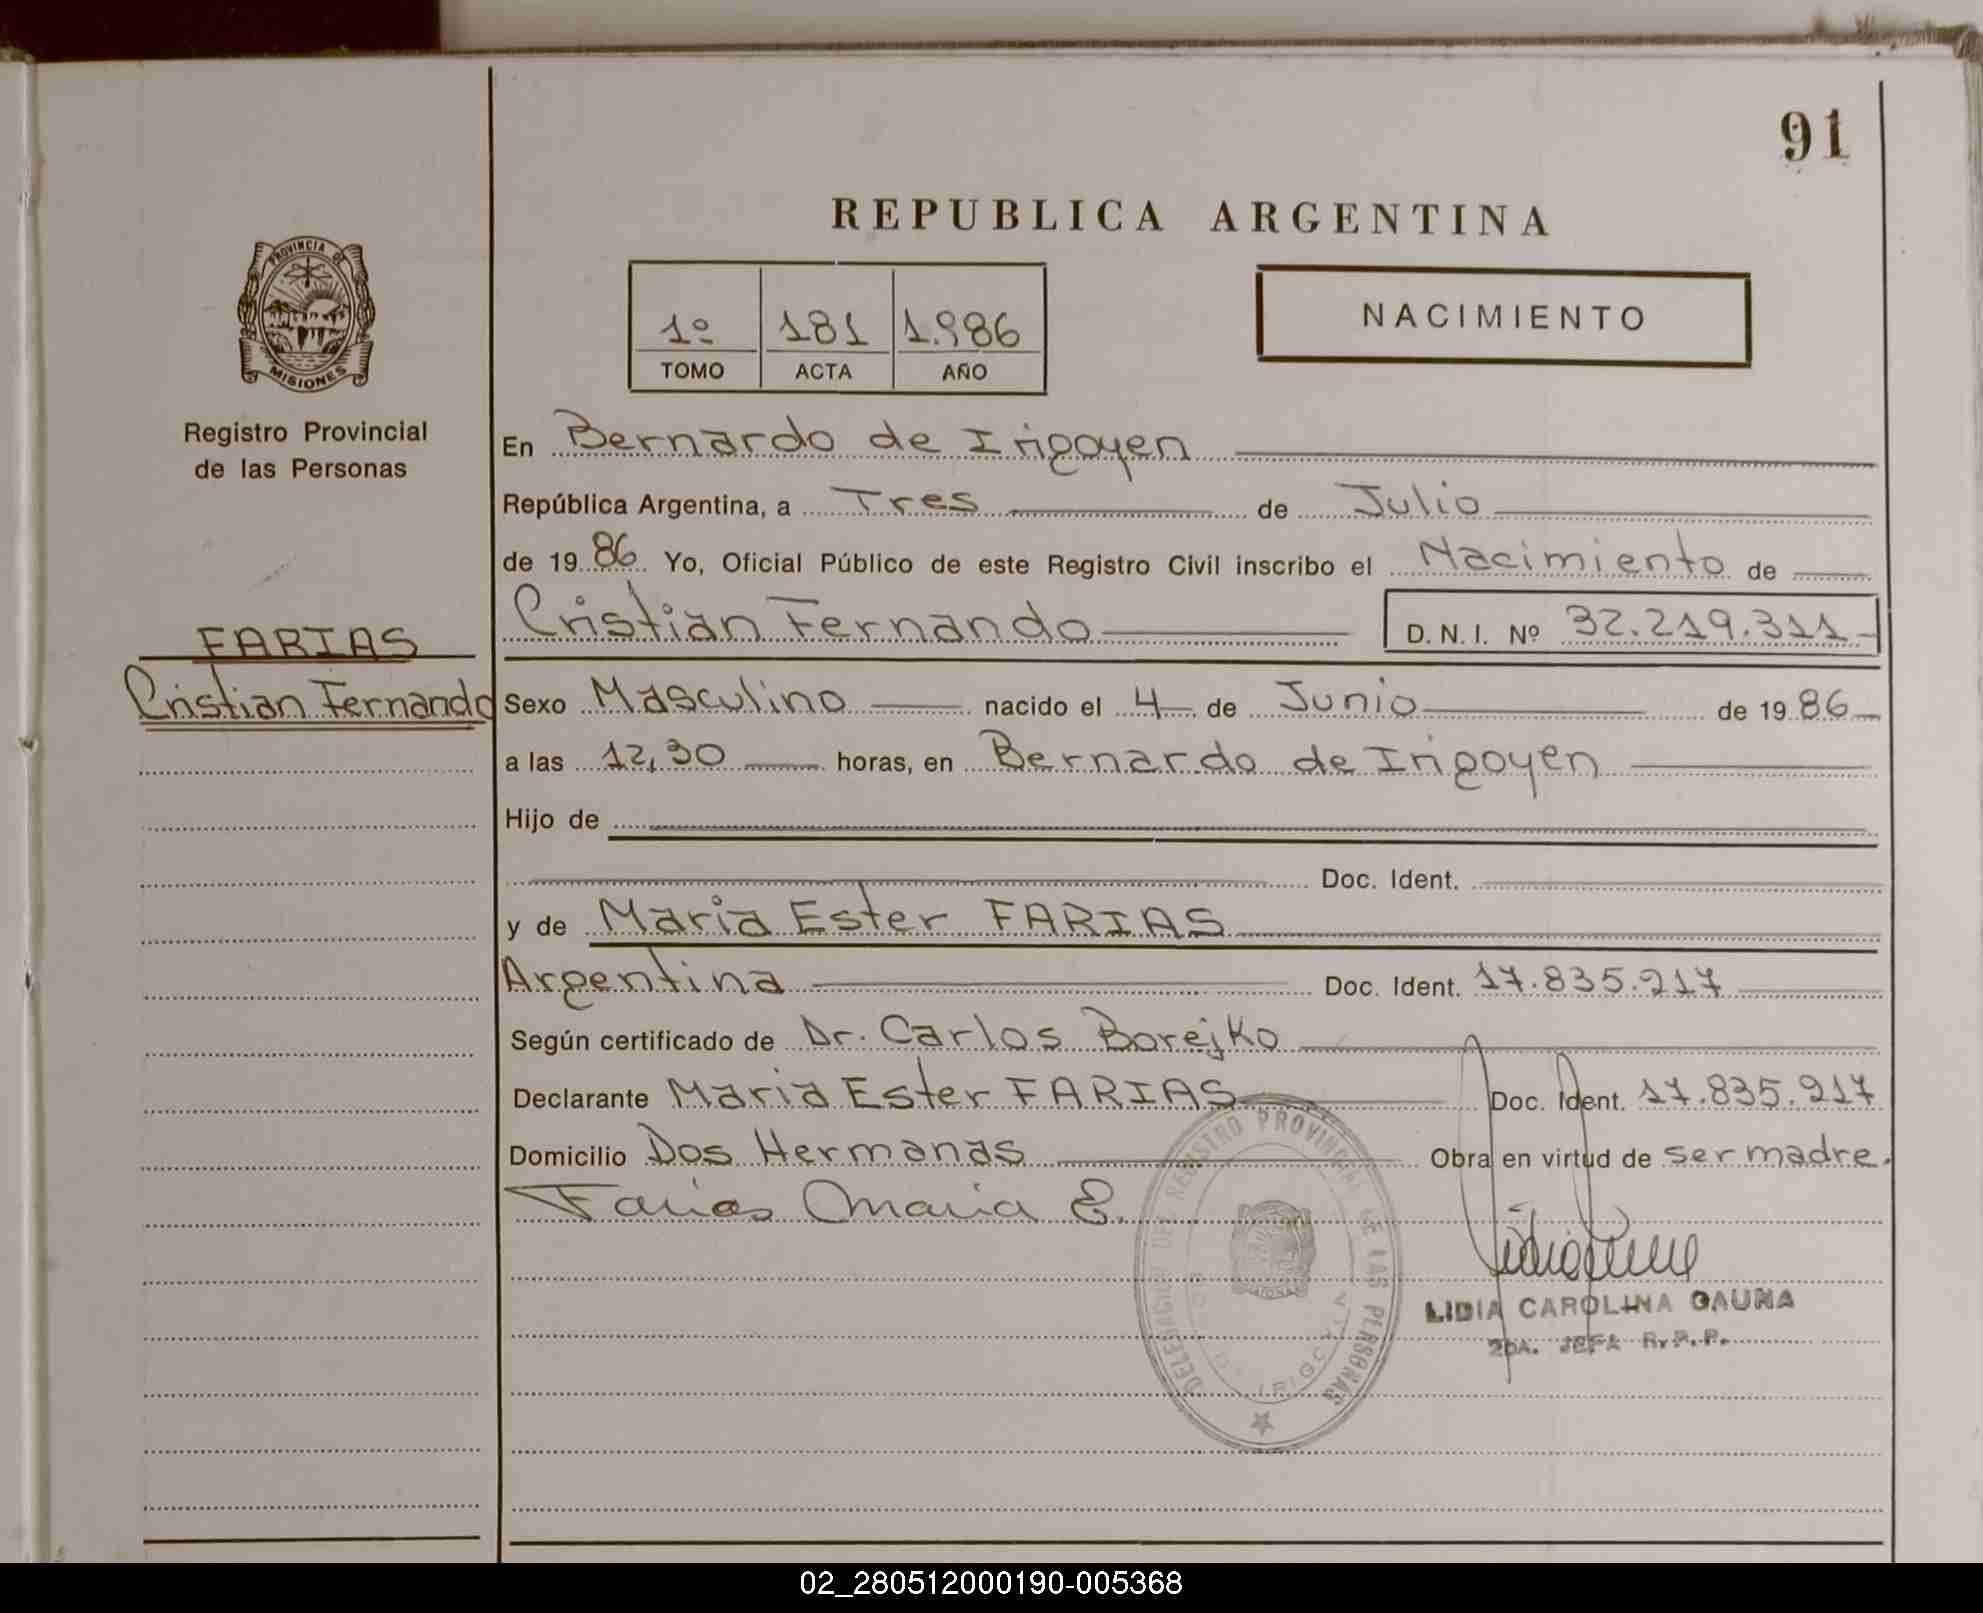 91
REPUBLICA ARGENTINA
PROVINCIA DE
MISIONES
1º 181 1.986
TOMO ACTA AÑO
NACIMIENTO
Registro Provincial
de las Personas
FARIAS
Cristian Fernando
En Bernardo de Irigoyen
República Argentina, a Tres de Julio
de 19 86 Yo, Oficial Público de este Registro Civil inscribo el Nacimiento de
Cristian Fernando D. N. I. Nº 32.219.311
Sexo Masculino nacido el 4 de Junio de 19 86
a las 12,30 horas, en Bernardo de Irigoyen
Hijo de
Doc. Ident.
y de Maria Ester FARIAS
Argentina Doc. Ident. 17.835.217
Según certificado de Dr. Carlos Borejko
Declarante Maria Ester FARIAS Doc. Ident. 17.835.217
Domicilio Dos Hermanas Obra en virtud de ser madre.
Farias Maria E.
DELEGACION DEL REGISTRO PROVINCIAL DE LAS PERSONAS
LIDIA CAROLINA GAUNA
2DA. JEFA R.P.P.
02_280512000190-005368